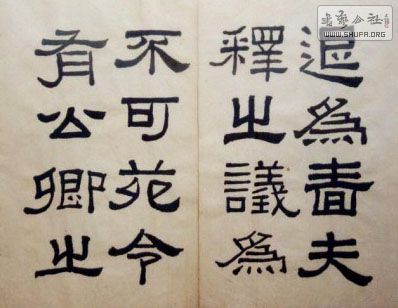 退為嗇夫
釋之議為
不可苑令
有公卿之
書藝公社
WWW.SHUFA.ORG